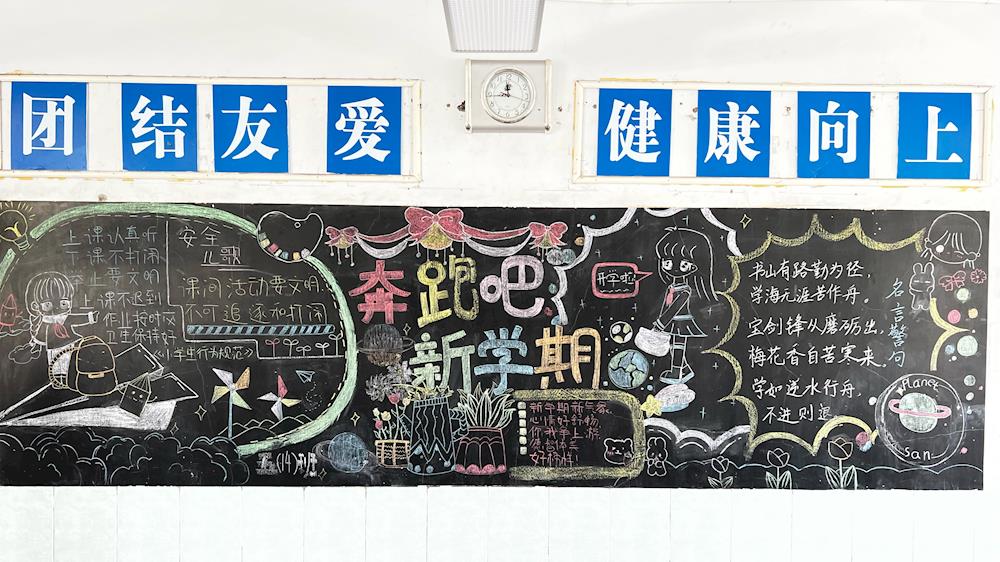 团结友爱
健康向上
上课认真听
下课不打闹
举止要文明
上课不迟到
作业按时交
卫生保持好
《小学生行为规范》
安全
儿歌
课间活动要文明
不可追逐水打闹
奔跑吧
新学期
开学啦
新学期新气象
好榜样
书山有路勤为径，
学海无涯苦作舟。
宝剑锋从磨砺出，
梅花香自苦寒来。
学如逆水行舟，
不进则退
名言警句
Planet
san